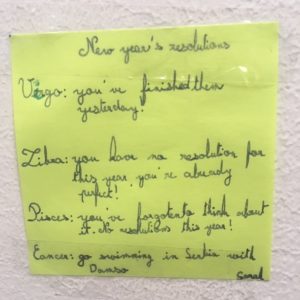 New year's resolutions
Virgo: you've finished them
yesterday!
Libra: you have no resolution for
this year you're already
perfect!
Pisces: you've forgotento think about
it. No resolutions this year!
Cancer: go swimming in Serbia with
Damso
Sarah